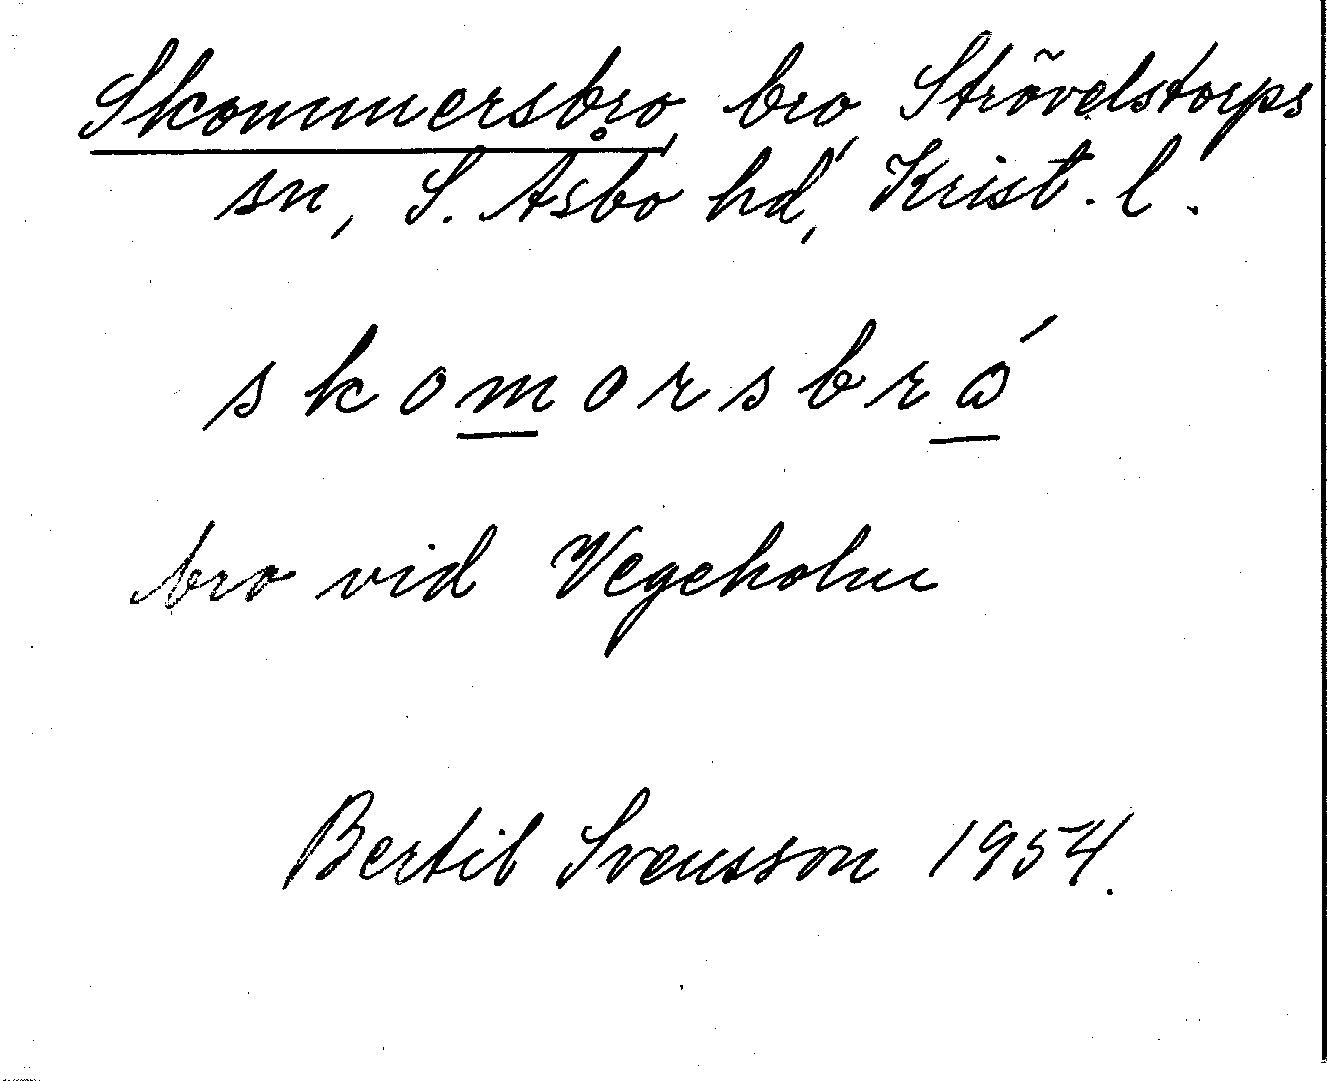 Skommersbro, bro, Strövelstorps
sn, S. Åsbo hd, Krist. l.
skomorsbró
bro vid Vegeholm
Bertil Svensson 1954.